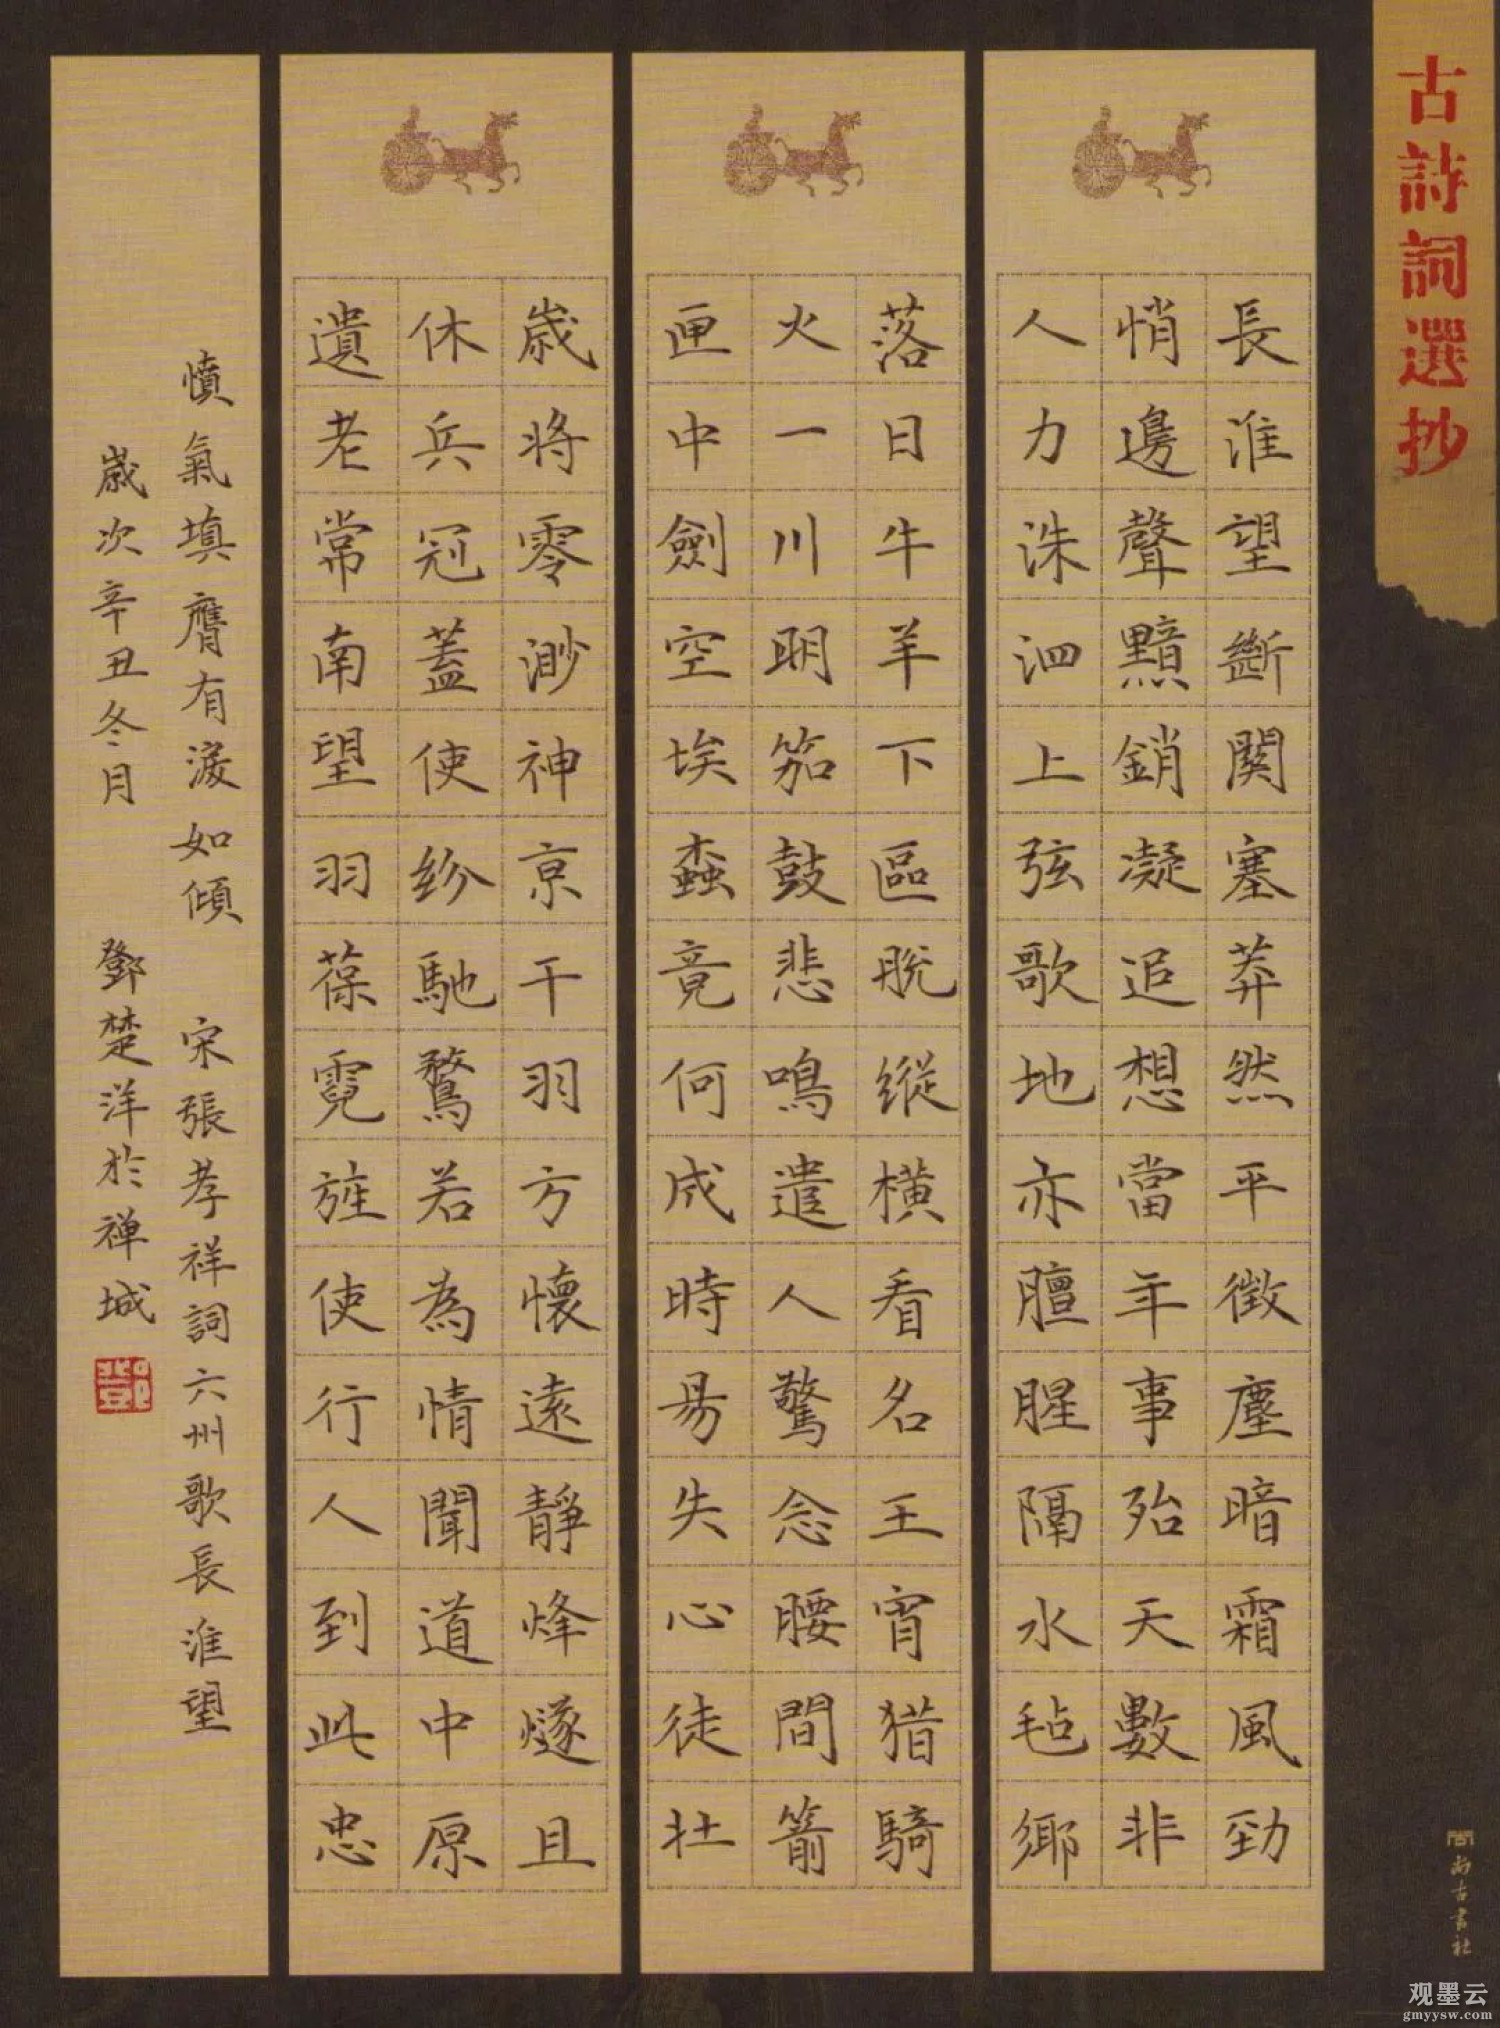 古詩詞選抄
長淮望斷関塞莽然平徵塵暗霜風勁
悄邊聲黯銷凝追想當年事殆天數非
人力洙泗上弦歌地亦膻腥隔水毡鄉
落日牛羊下區脫縱橫看名王宵猎騎
火一川明笳鼓悲鳴遣人驚念腰間箭
匣中劍空埃蠹竟何成時易失心徒壯
歲將零渺神京干羽方懷遠靜烽燧且
休兵冠蓋使紛馳騖若為情聞道中原
遺老常南望羽葆霓旌使行人到此忠
憤氣填膺有淚如傾 宋張孝祥詞六州歌長淮望
歲次辛丑冬月 鄧楚洋於禅城
鄧
尚古書社
观墨云
gmyysw.com